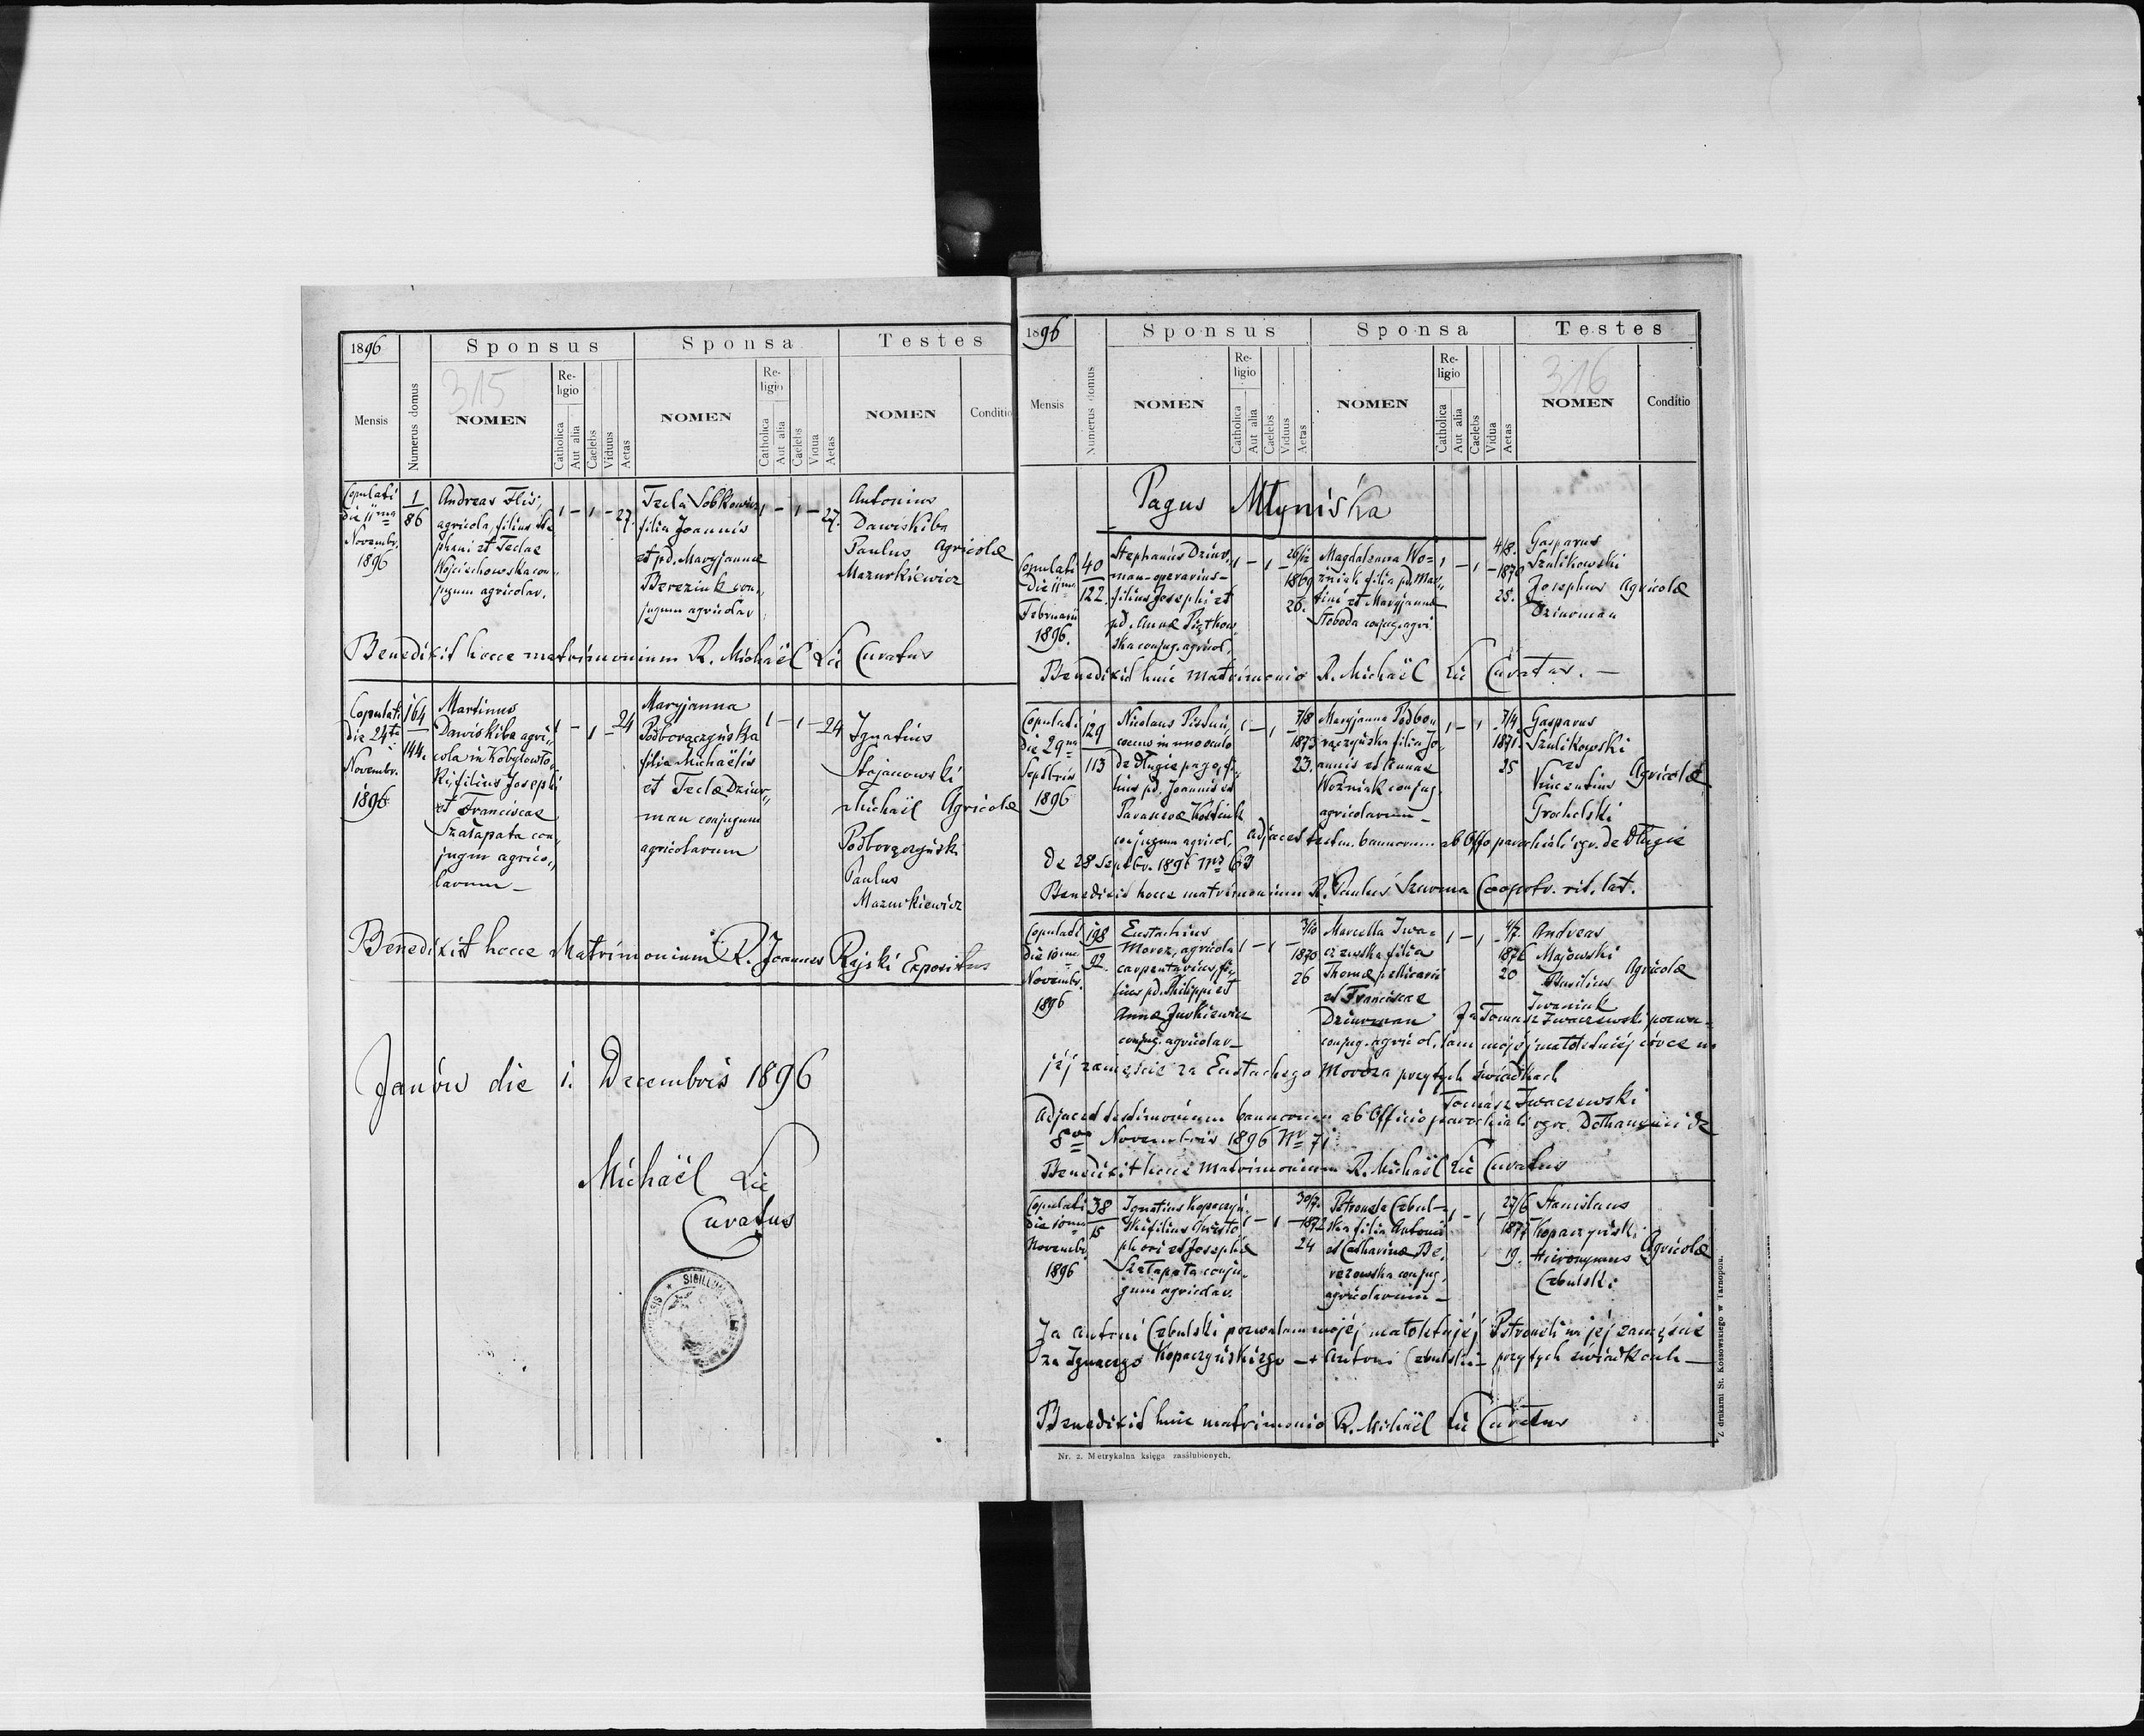 1896
Sponsus
Sponsa
Testes
315
Mensis
Numerus domus
NOMEN
Religio
Catholica
Aut alia
Caelebs
Viduus
Aetas
NOMEN
Religio
Catholica
Aut alia
Caelebs
Vidua
Aetas
NOMEN
Conditio
Copulati
die 11ma
Novembr.
1896
1
86
Andreas Flis,
agricola, filius Ste
phani et Teclae
Wojciechowska con„
jugum agricolar.
1 – 1 – 27.
Tecla Sobkowicz
filia Joannis
et pd. Maryjannae
Bereziuk con„
jugum agricolar
1 – 1 – 27.
Antonius
Dawiskiba
Paulus Agricolae
Mazurkiewicz
Benedixit hocce matrimonium R. Michaël Lic Curatus
Copulati
die 24ta
Novembr.
1896
164
144.
Martinus
Dawiskiba agri„
cola in Kobyłowło„
ki, filius Josephi
et Franciscae
Szałapata con„
jugm agrico„
larum –
1 – 1 – 24
Maryjanna
Podborączyńska
filia Michaëlis
et Teclae Dziur„
man conjugum
agricolarum
1 – 1 – 24
Ignatius
Stojanowski
Michaël Agricolae
Podborączyński
Paulus
Mazurkiewicz
Benedixit hocce Matrimonium R. Joannes Rajski Expositus
Janów die 1. Decembris 1896
Michaël Lic
Curatus
SIGILLUM
1896
Sponsus
Sponsa
Testes
316
Mensis
Numerus domus
NOMEN
Religio
Catholica
Aut alia
Caelebs
Viduus
Aetas
NOMEN
Religio
Catholica
Aut alia
Caelebs
Vidua
Aetas
NOMEN
Conditio
Pagus Młyniska
Copulati
die 11ma
Februarii
1896.
40
122.
Stephanus Dziur„
man – operarius –
filius Josephi et
pd. Annae Piątkow„
ska conjug. agricol.
1 – 1 – 26/12
1869
26.
Magdalena Wo=
źniak filia pd. Mar„
tini et Maryjannae
Słoboda conjug. agri
1 – 1 – 4/8.
1870
25.
Gasparus
Szulikowski
Josephus Agricolae
Dziurman
Benedixit huic matrimonio R. Michaël Lic Curatus. –
Copulati
die 29na
Septbris
1896
129
113
Nicolaus
coecus in uno oculo
de Długie pago, fi„
lius pd. Joannis et
Parascevae Kostiuk
conjugum agricol.
1 – 1 – 7/8
1873
23.
Maryjanna Podbo„
rączyńska filia Jo„
annis et Annae
Woźniak conjug.
agricolarum –
1 – 1 – 7/4
1871.
25
Gasparus
Szulikowski
et Agricolae
Vincentius
Grocholski
adjacet testim. bannorum ab Offo parochiali rgr. de Długie
de 28 Septbr. 1896 Nro 63
Benedixit hocce matrimonium R. Paulus Szurma Cooprtr. rit. lat.
Copulati
die 10ma
Novembr.
1896
198
92.
Eustachius
Moroz, agricola
carpentarius, fi„
lius pd. Philippi et
Annae Jurkiewicz
conjug. agricolar –
1 – 1 – 3/10
1870
26
Marcella Iwa=
czewska filia
Thomae pellicarii
et Franciscae
Dziurman
conjug. agricol.
1 – 1 – 4/7.
1876
20
Andreas
Majowski
Basilius Agricolae
Iwaniuk
Ja Tomasz Iwaczewski pozwa=
lam mojej małoletniej córce na
jéj zamęście za Eustachego Moroza przy tych świadkach
Tomasz Iwaczewski
Adjacet testimonium bannorum ab Officio parochiali rgr.
8va Novembris 1896 Nr 71
Benedixit hocce Matrimonium R. Michaël Lic Curatus
Copulati
die 10ma
Novembr.
1896
38
15
Ignatius Kopaczyń„
ski filius Christo
phori et Josephae
Szałapata conju„
gum agricolar.
1 – 1 – 30/7.
1872
24
Petronela Cebul–
ska filia Antonii
et Catharinae Be„
rezowska conjug.
agricolarum –
1 – 1 – 27/6
1877
19.
Stanislaus
Kopaczyński
Hieronymus Agricolae
Cebulski
Ja Antoni Cebulski pozwalam mojéj małoletniéj Petroneli na jéj zamęście
za Ignacego Kopaczyńskiego – + Antoni Cebulski – przy tych świadkach –
Benedixit huic matrimonio R. Michaël Lic Curatus
Nr. 2. Metrykalna księga zaślubionych.
Z drukarni St. Kossowskiego w Tarnopolu.